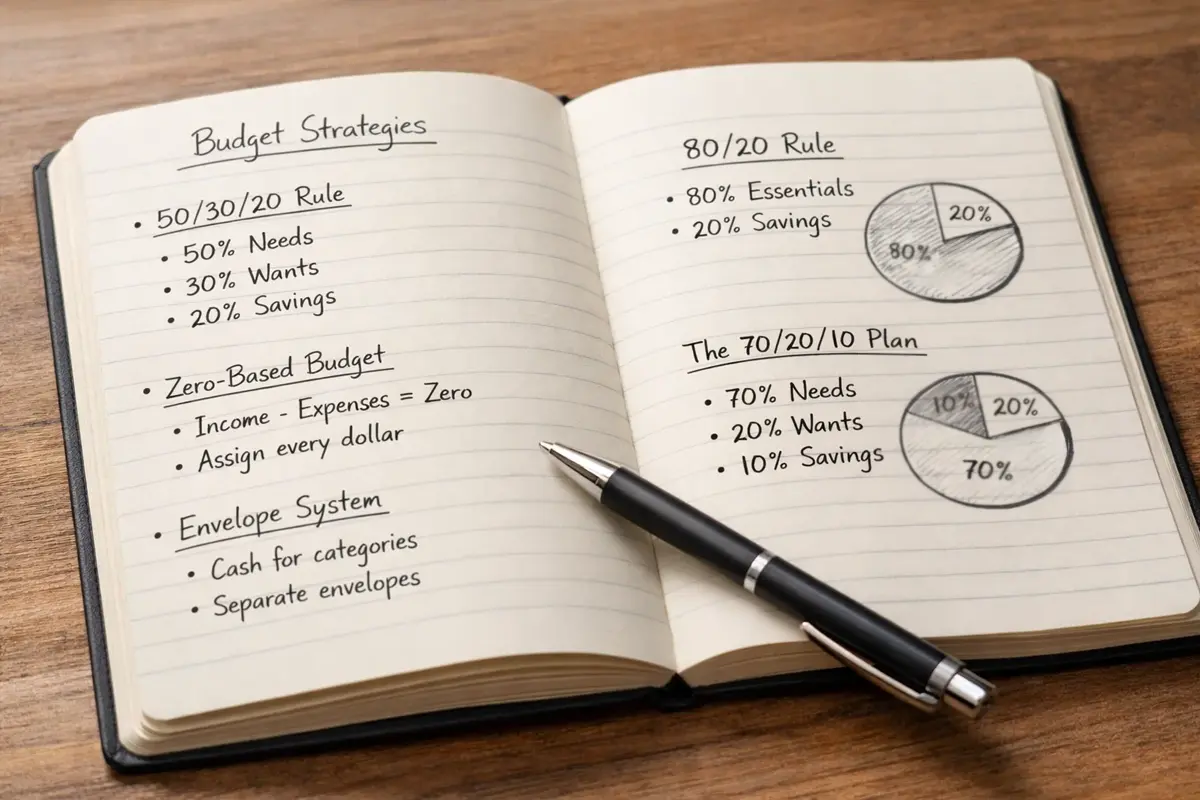 Budget Strategies
• 50/30/20 Rule
• 50% Needs
• 30% Wants
• 20% Savings
• Zero-Based Budget
• Income - Expenses = Zero
• Assign every dollar
• Envelope System
• Cash for categories
• Separate envelopes
80/20 Rule
• 80% Essentials
• 20% Savings
20%
80%
The 70/20/10 Plan
• 70% Needs
• 20% Wants
• 10% Savings
10%
20%
70%